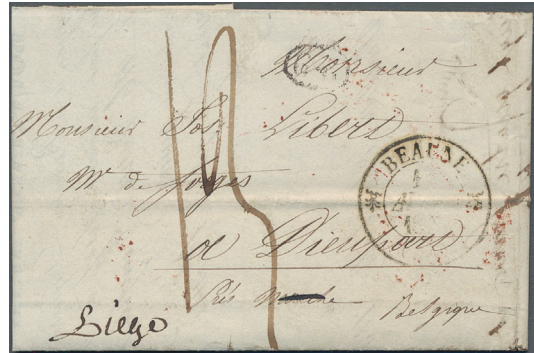 Monsieur
Monsieur Jos. Libert
Mr de forges
a Dieupart
Près Belgique
Liége
BEAUNE